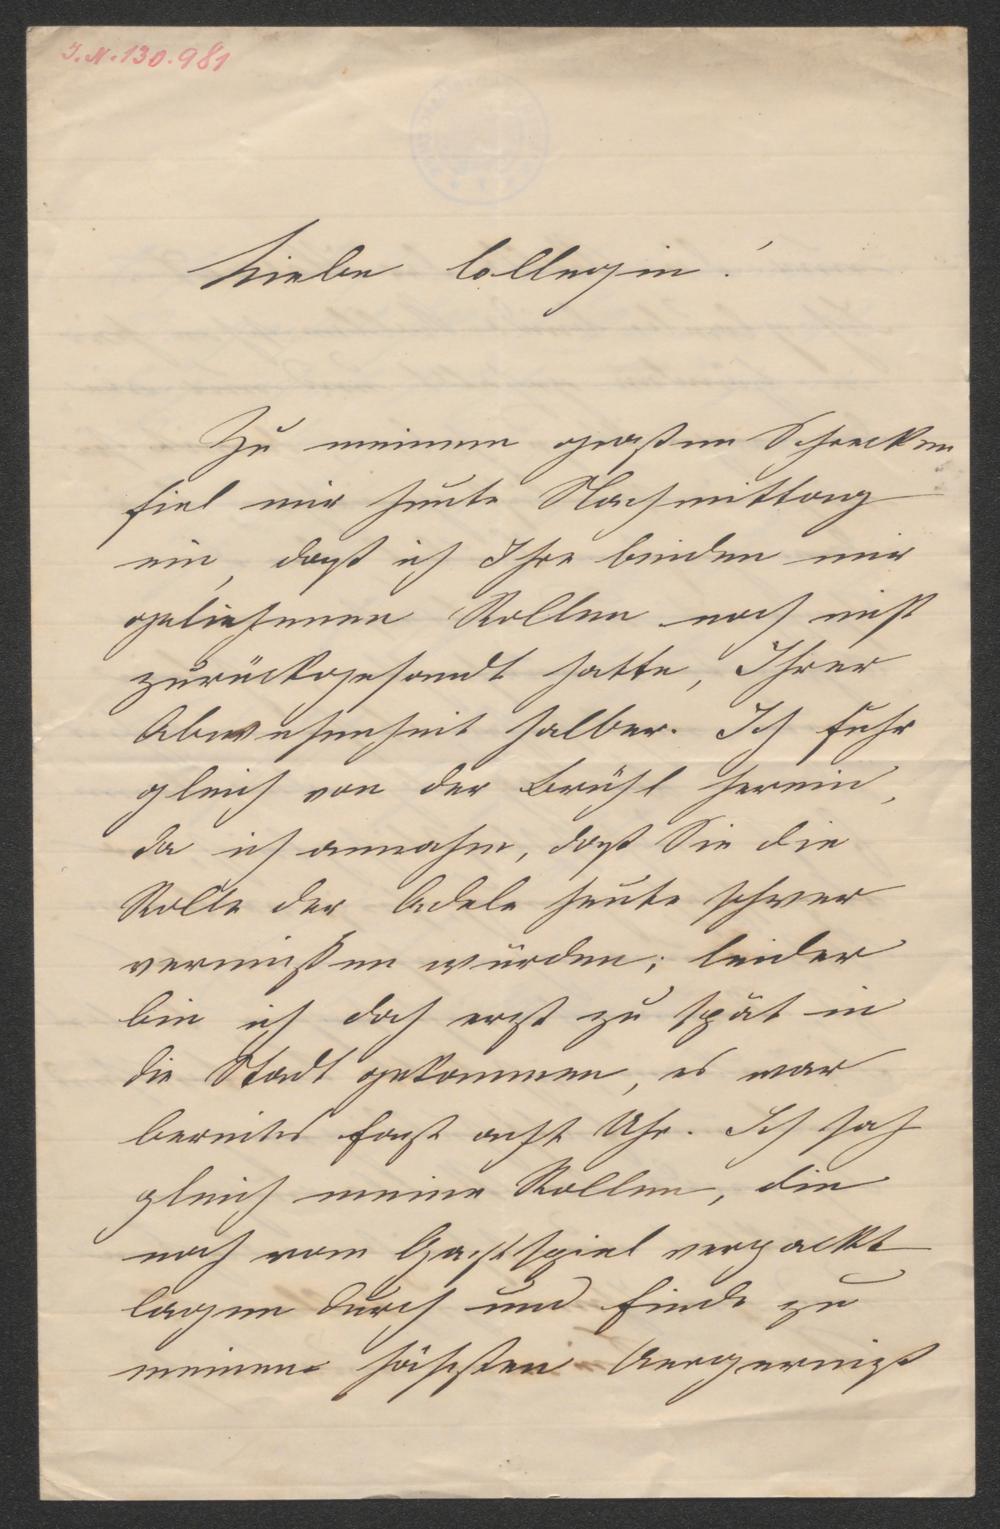 I.N.130.981
Liebe Collegin!
Zu meinem großen Schrecken
fiel mir heute Nachmittag
ein, daß ich Ihre beiden mir
geliehenen Rollen noch nicht
zurückgesandt hatte, Ihrer
Abwesenheit halber. Ich fuhr
gleich von der Brühl herein,
da ich annahm, daß Sie die
Rolle der Adele heute schwer
vermißen würden; leider
bin ich doch erst zu spät in
die Stadt gekommen, es war
bereits fast acht Uhr. Ich sah
gleich meine Rollen, die
noch vom Gastspiel verpackt
lagen durch und finde zu
meinem höchsten Aergerniß